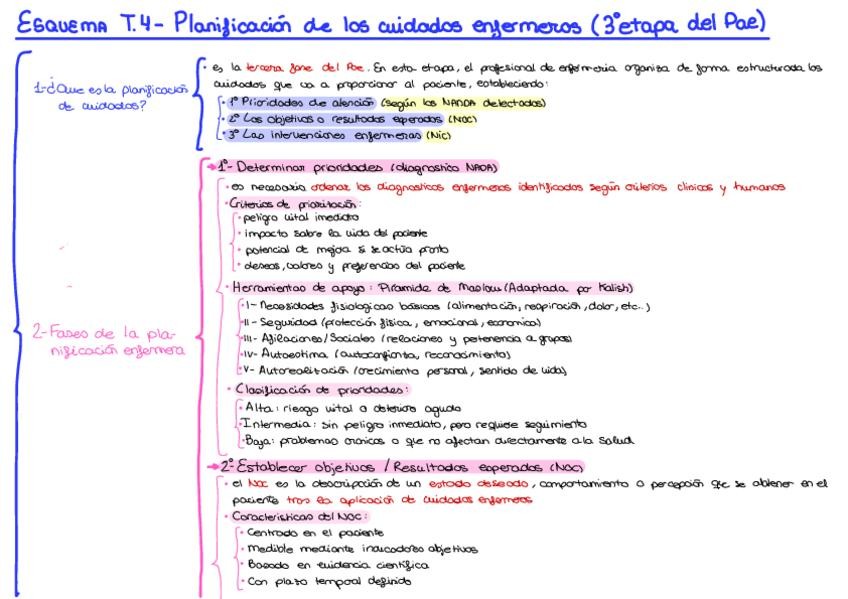 ESQUEMA T.4- Planificación de los cuidados enfermeros (3ªetapa del Pae)
1-¿Que es la planificación
de cuidados?
· es la tercera fase del Pae. En esta etapa, el profesional de enfermería organiza de forma estructurada los
cuidados que va a proporcionar al paciente, estableciendo:
· 1º Prioridades de atención (según los NANDA detectados)
· 2º Los objetivos o resultados esperados (NOC)
· 3º Las intervenciones enfermeras (Nic)
2-Fases de la pla-
nificación enfermera
→1º- Determinar prioridades (diagnostico NADA)
· es necesario ordenar los diagnosticos enfermeros identificados según criterios clinicos y humanos
· Criterios de priorización:
· peligro vital inmediato
· impacto sobre la vida del paciente
· potencial de mejora si se actúa pronto
· deseos, valores y preferencias del paciente
· Herramientas de apoyo: Piramide de Maslow (Adaptada por Kalish)
· I- Necesidades fisiologicas básicas (alimentación, respiración, dolor, etc..)
· II- Seguridad (protección física, emocional, economica)
· III- Afiliaciones/Sociales (relaciones y pertenencia a grupos)
· IV- Autoestima (autoconfianza, reconocimiento)
· V- Autorrealización (crecimiento personal, sentido de vida)
· Clasificación de prioridades:
· Alta: riesgo vital o deterioro agudo
· Intermedia: sin peligro inmediato, pero requiere seguimiento
· Baja: problemas cronicos o que no afectan directamente a la salud
→2º- Establecer objetivos / Resultados esperados (NOC)
· el NOC es la descripción de un estado deseado, comportamiento o percepción que se obtener en el
paciente tras la aplicación de cuidados enfermeros
· Caracteristicas del NOC:
· Centrado en el paciente
· Medible mediante indicadores objetivos
· Basado en evidencia científica
· Con plazo temporal definido